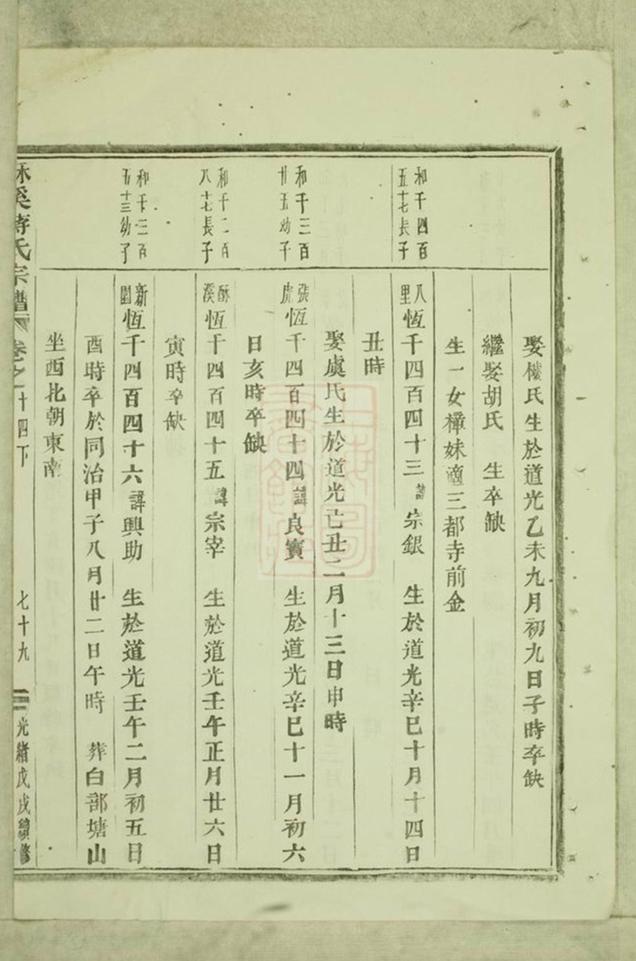 娶樓氏生於道光乙未九月初九日子時卒缺
繼娶胡氏　生卒缺
生一女樟妹適三都寺前金
和千四百五十七長子
八里恆千四百四十三諱宗銀　生於道光辛巳十月十四日
丑時
娶虞氏生於道光己丑二月十三日申時
和千三百廿五幼子
恆千四百四十四諱良寶　生於道光辛巳十一月初六
日亥時卒缺
和千二百八十七長子
酥溪恆千四百四十五諱宗宰　生於道光壬午正月廿六日
寅時卒缺
和千三百五十三幼子
新園恆千四百四十六諱興助　生於道光壬午二月初五日
酉時卒於同治甲子八月廿二日午時　葬白部塘山
坐西北朝東南
溪蔣氏宗譜　卷之十四下　七十九　光緒戊戌續修